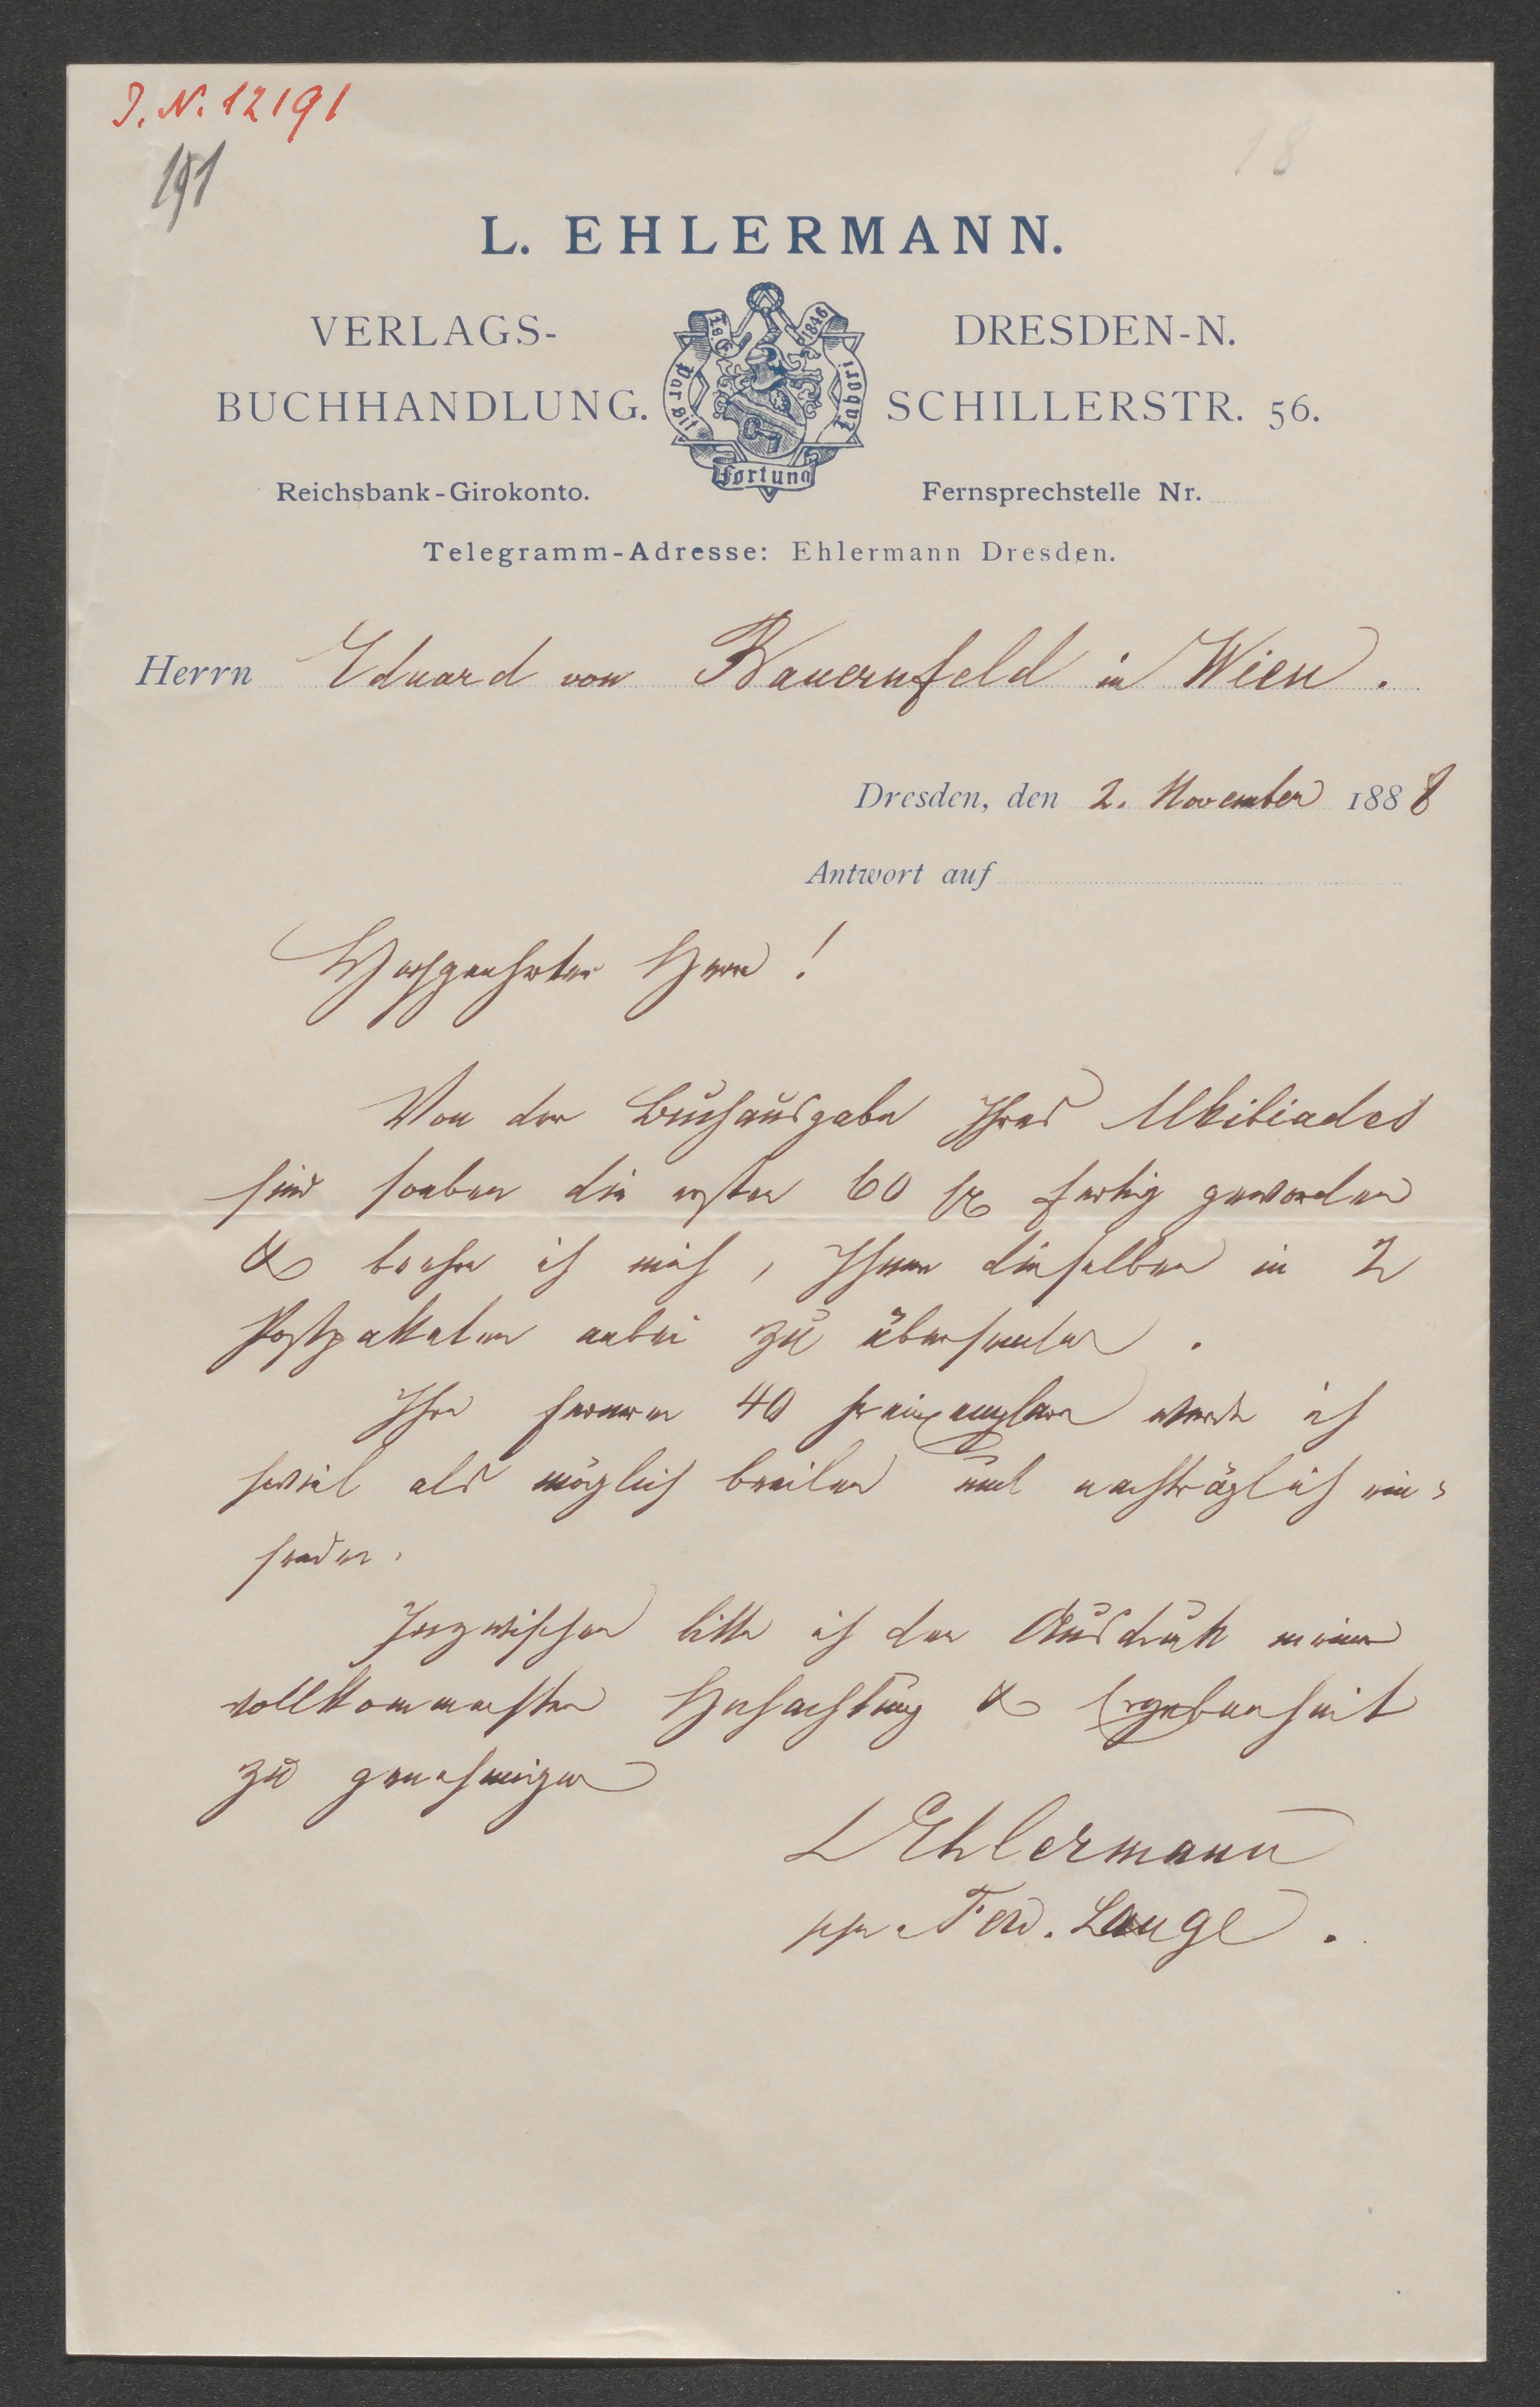 J. N. 12191
191
18
L. EHLERMANN.
VERLAGS-
BUCHHANDLUNG.
1846
Par sit
Fortuna
Labori
DRESDEN-N.
SCHILLERSTR. 56.
Reichsbank-Girokonto.
Fernsprechstelle Nr.
Telegramm-Adresse: Ehlermann Dresden.
Herrn Eduard von Bauernfeld in Wien.
Dresden, den 2. November 1888
Antwort auf
Hochgeehrter Herr!
Von der Buchausgabe Ihres Alkibiades
sind soeben die ersten 60 fertig geworden
& beehre ich mich, Ihnen dieselben in 2
Postpakketen anbei zu übersenden.
Ihre ferneren 40 Freiexemplare werde ich
soviel als möglich beeilen und nachträglich ein-
senden.
Inzwischen bitte ich den Ausdruck meiner
vollkommensten Hochachtung & Ergebenheit
zu genehmigen
L Ehlermann
ppa Ferd. Lange.